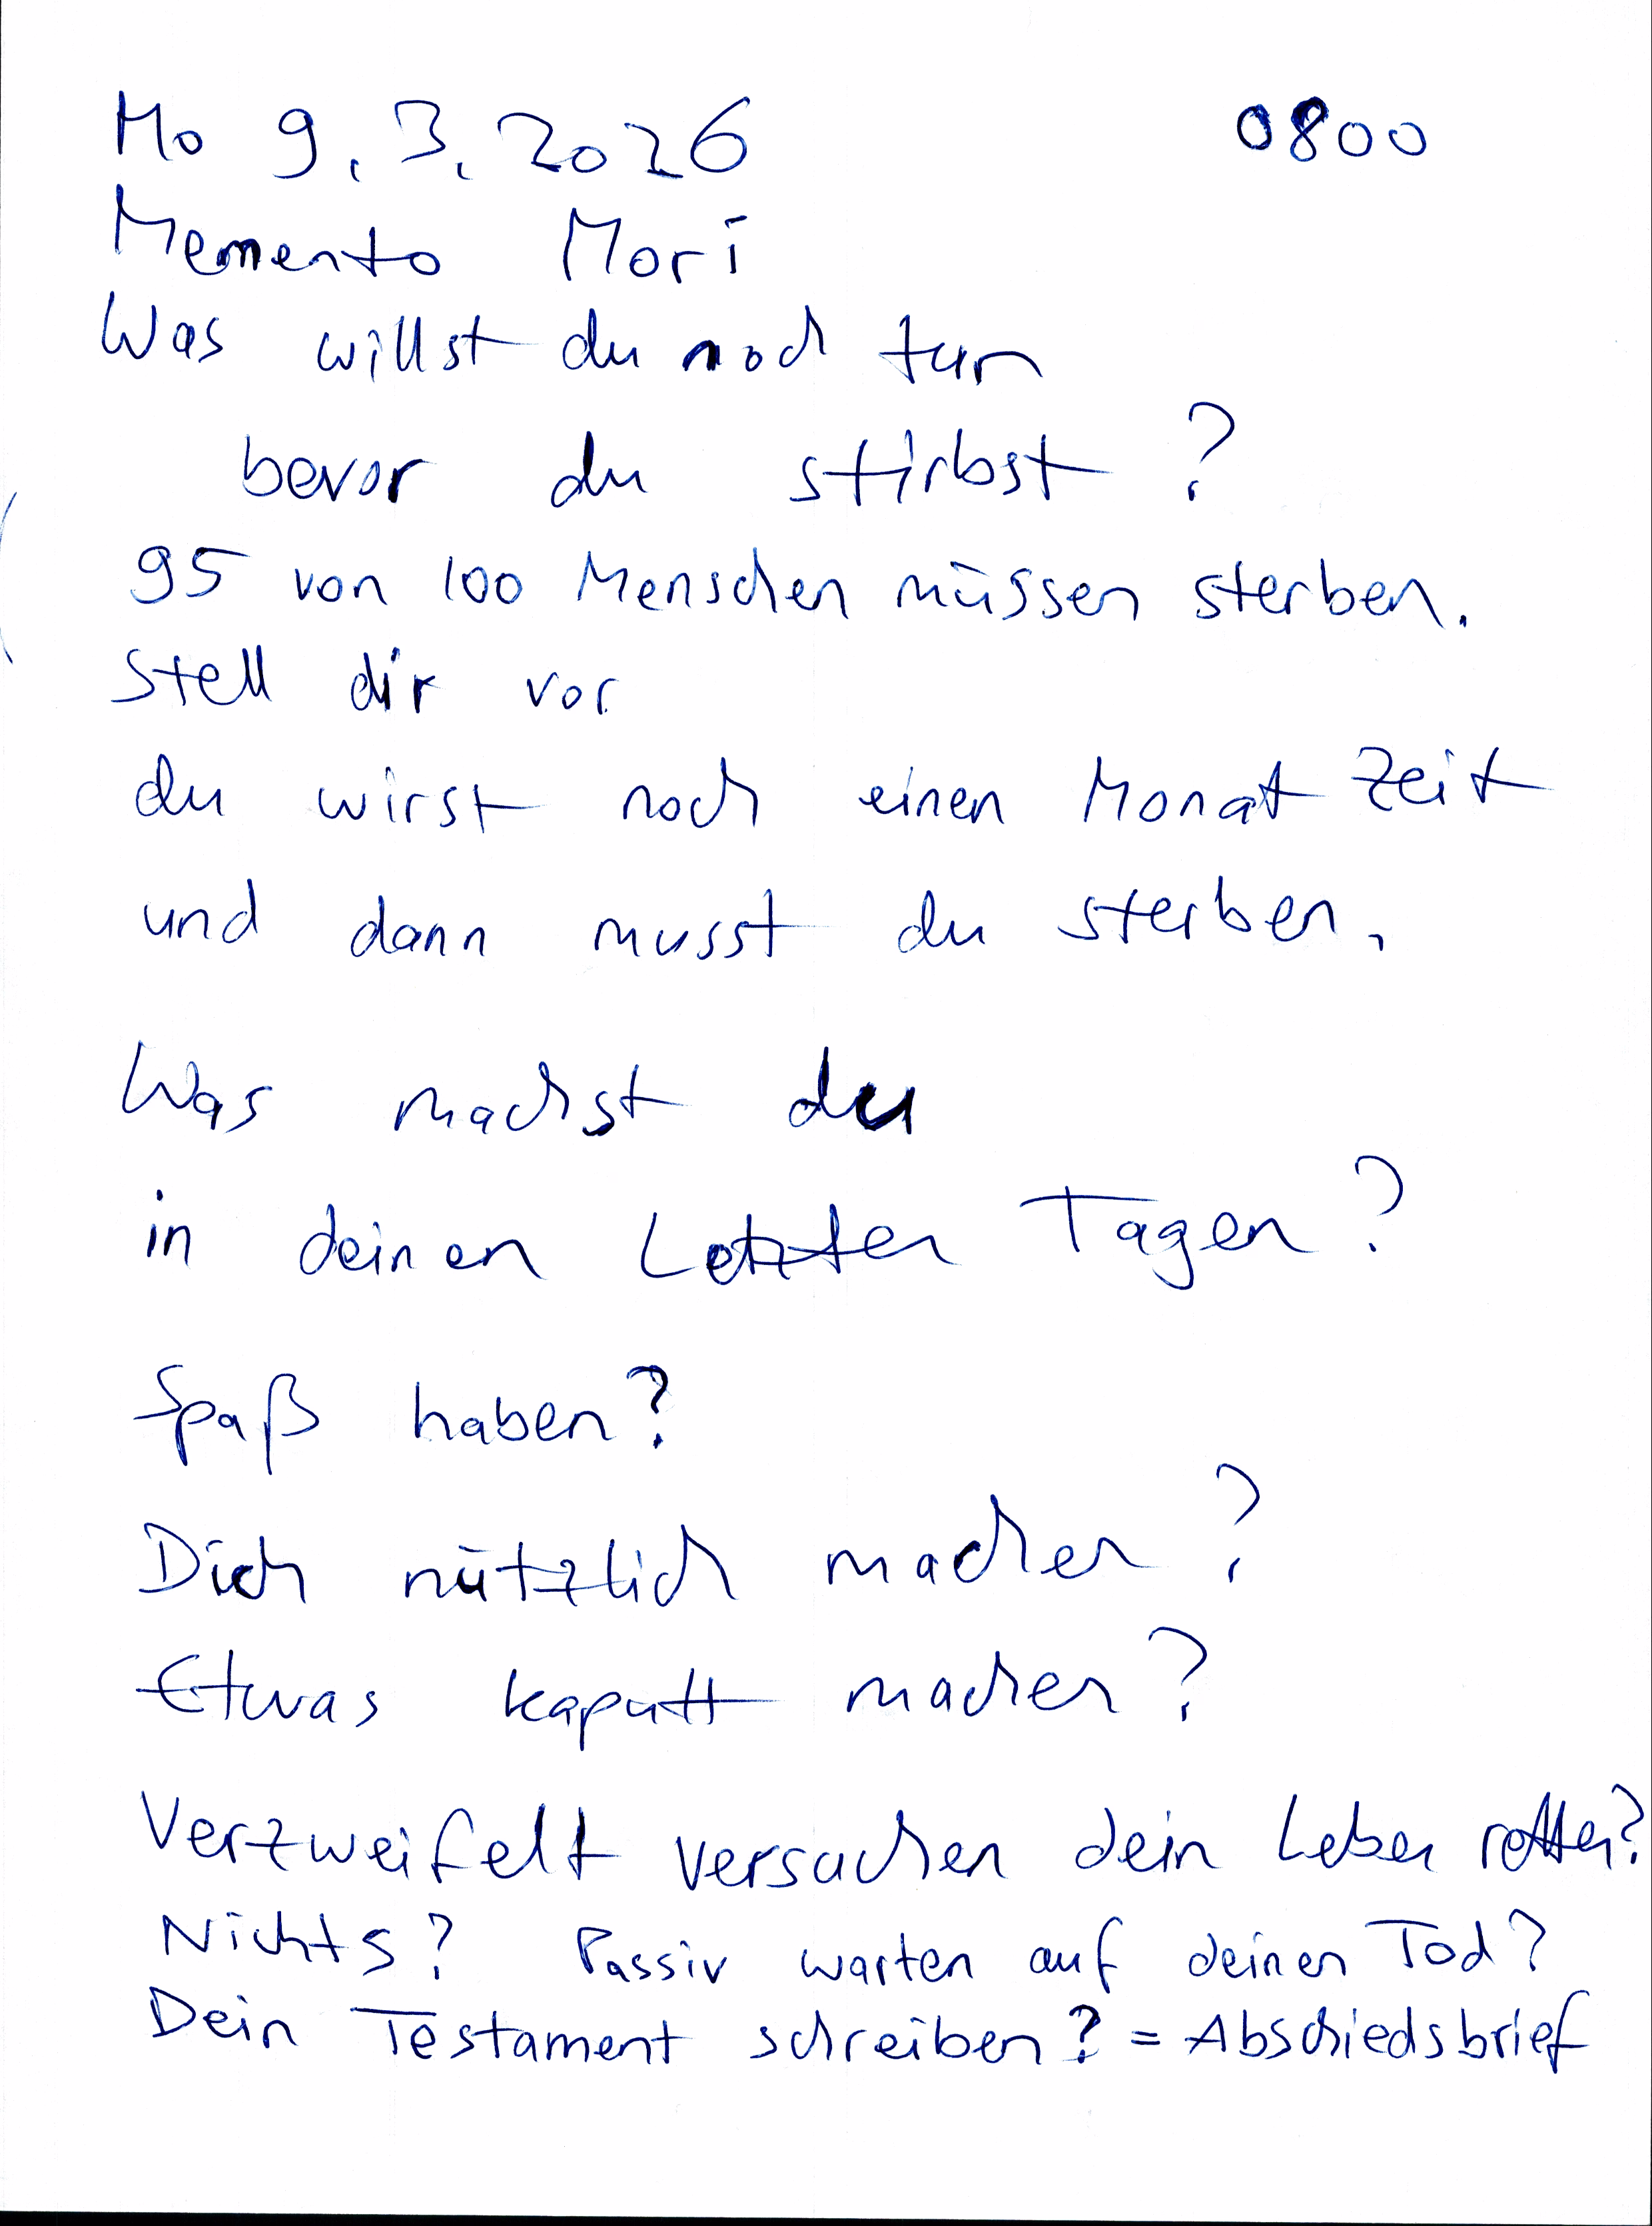 Mo 9.3.2026 0800
Memento Mori
Was willst du noch tun
bevor du stirbst?
95 von 100 Menschen müssen sterben.
Stell dir vor
du wirst noch einen Monat Zeit
und dann musst du sterben.
Was machst du
in deinen Letzten Tagen?
Spaß haben?
Dich nützlich machen?
Etwas kaputt machen?
Verzweifelt versuchen dein Leben retten?
Nichts? Passiv warten auf deinen Tod?
Dein Testament schreiben? = Abschiedsbrief